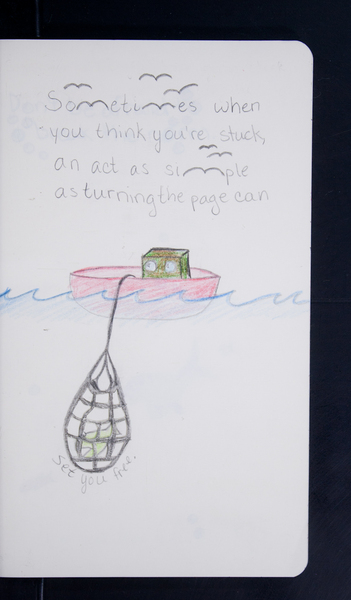 Sometimes when
you think you're stuck,
an act as simple
as turning the page can
set you free.